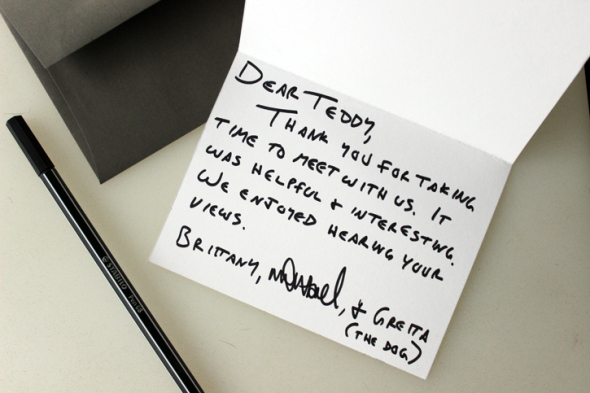 DEAR TEDDY,
THANK YOU FOR TAKING
TIME TO MEET WITH US. IT
WAS HELPFUL & INTERESTING.
WE ENJOYED HEARING YOUR
VIEWS.
BRITTANY, Michael, & GRETTA
(THE DOG)